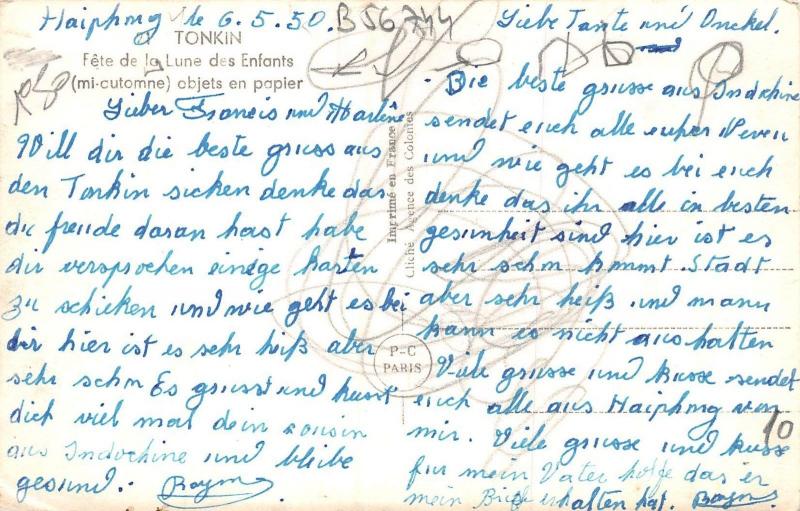 Haiphong le 6.5.50.
B56744
TONKIN
Fête de la Lune des Enfants
(mi-cutomne) objets en papier
Lieber Francis und Marlène
Will dir die beste gruss aus
den Tonkin sicken denke das
du freude daran hast habe
dir versprochen einige karten
zu schicken und wie geht es bei
dir hier ist es sehr heiß aber
sehr schön Es grüsst und küsst
dich viel mal dein cousin
aus Indochine und bleibe
gesund.
Raym
Imprimé en France
Cliché Agence des Colonies
P-C
PARIS
Liebe Tante und Onckel.
Die beste grusse aus Indochine
sendet euch alle euer Neveu
und wie geht es bei euch
denke das ihr alle in besten
gesunheit sind hier ist es
sehr schön kommt Stadt
aber sehr heiß und mann
kann es nicht aushalten
Viele grusse und kusse sendet
euch alle aus Haiphong von
mir. Viele grusse und kusse
fur mein Vater hoffe das er
mein Brief erhalten hat. Raym
10